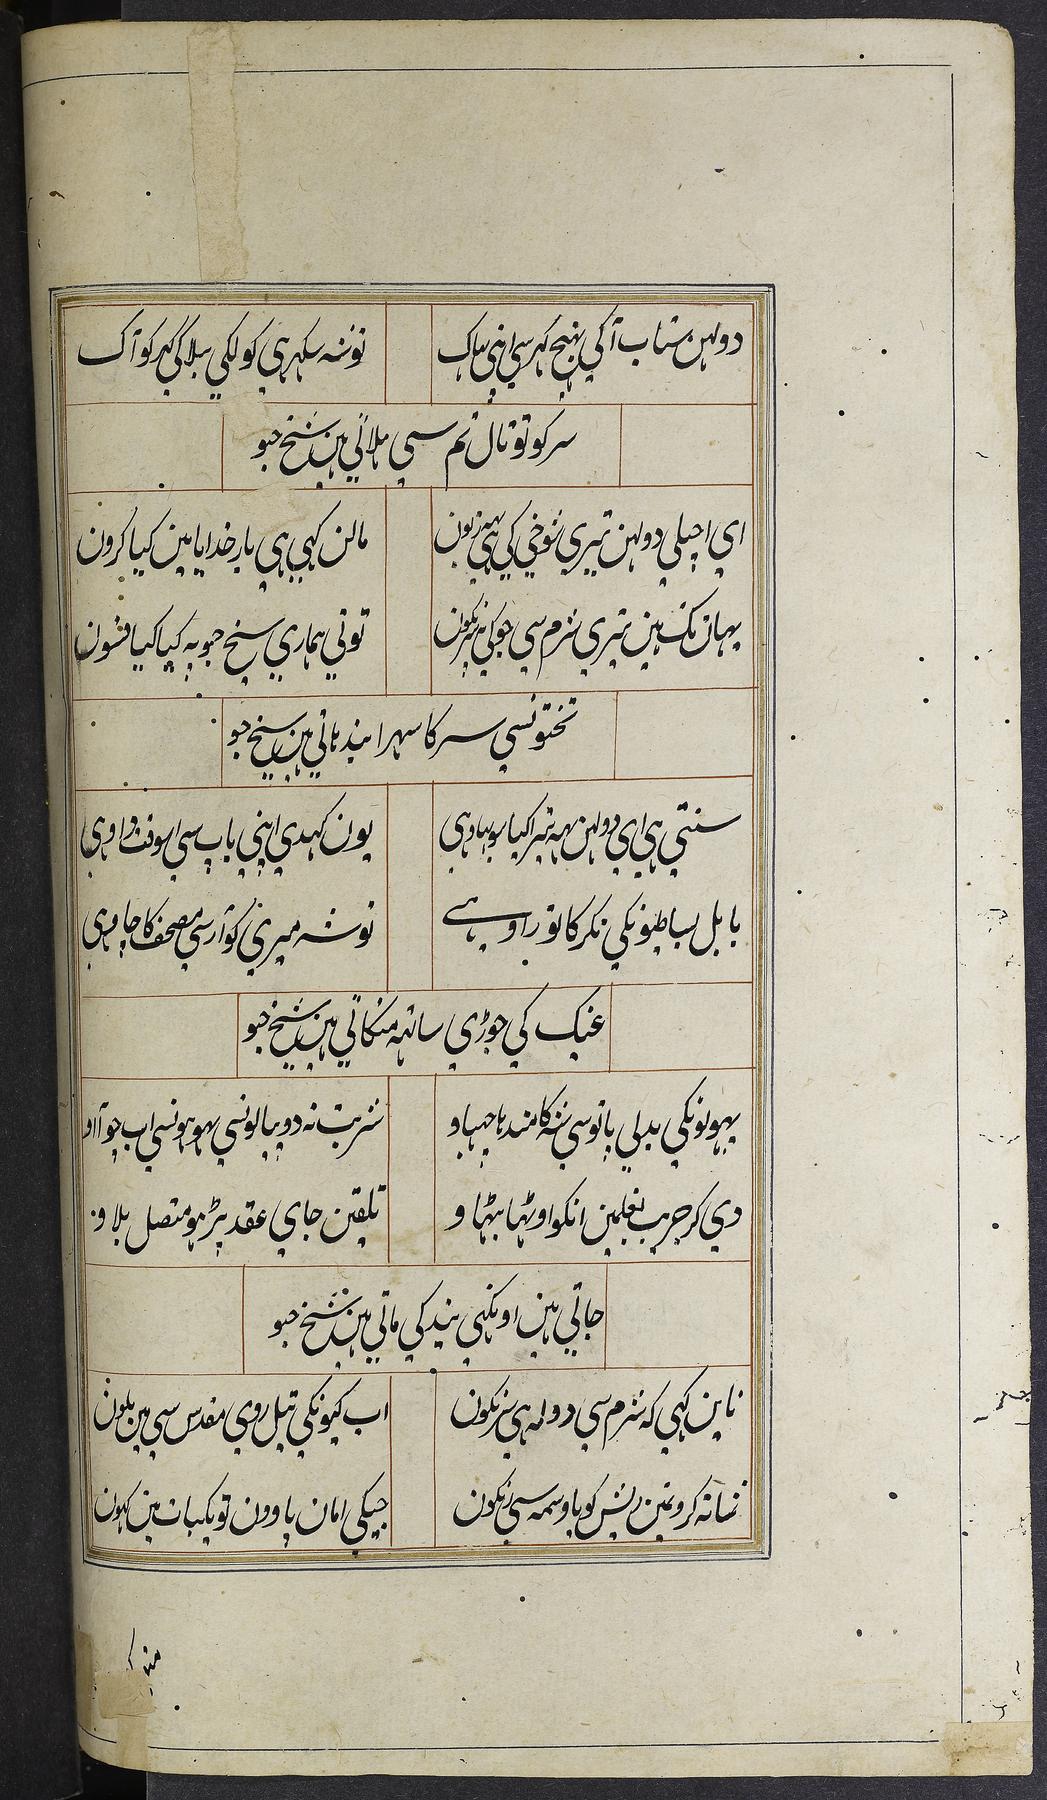 دولہن شتاب آکی پہنچ گہر سی اپنی بہاگ
نوشہ سکہری کو لگی بہلا گی گہر کو آگ
سر کو تو تال تم سی ہلاتی ہین شیخ جیو
ای اچپلی دولہن تیری شوخی کی ہی یہ زبون
مالن کہی ہی بار خدایا مین کیا کرون
یہان تک ہین تیری شرم سی جو کی سرنگون
توتی ہماری شیخ جیو پہ کیا کیا فسون
تختونسی سر کا سہرا بندہاتی ہین شیخ جیو
سنتی ہی ای دولہن یہ تیرا کیا سوبہاو ہی
یون کہدی اپنی باپ سی اسوقت داو ہی
بابل بساطیونکی نکر کا تو راو ہے
نوشہ میری کو آرسی مصحف کا چاو ہی
عینک کی جوڑی ساتہہ منگاتی ہین شیخ جیو
پہولونکی بدلی پاتوسی شہ کا مندہا چہپاو
شربت نہ دو پیالونسی بہوہونسی اب چوآاو
دی کر جریب بغلمین انکو اوٹہا بٹہا و
تلقین جای عقد پڑہو متصل بلاو
جاتی ہین اونگہی نیند کی ماتی ہین شیخ جیو
ناین کہی کہ شرم سی دولہ ہی سرنگون
اب کیونکی تیل روی مقدس سی مین ملون
شانہ کرو تمین ریش کو یا وسمہ سی رنگون
جیکی امان پاوون تو یکبات مین کہون